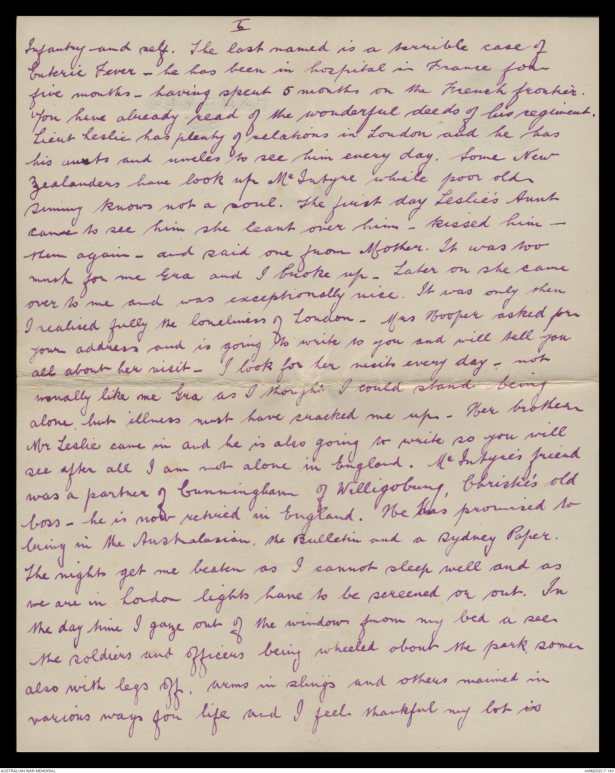 5
Infantry and self. The last named is a terrible case of
Enteric Fever - he has been in hospital in France for
five months - having spent 5 months on the French frontier.
You have already read of the wonderful deeds of his regiment.
Lieut Leslie has plenty of relations in London and he has
his aunts and uncles to see him every day. Some New
Zealanders have look up McIntyre while poor old
Simmy knows not a soul. The first day Leslie's Aunt
came to see him she leant over him - kissed him -
then again - and said one from Mother. It was too
much for me Gra and I broke up - Later on she came
over to me and was exceptionally nice. It was only then
I realised fully the loneliness of London - Mrs Hooper asked for
your address and is going to write to you and will tell you
all about her visit - I look for her visits every day - not
usually like me Gra as I thought I could stand being
alone but illness must have cracked me up - Her brother
Mr Leslie came in and he is also going to write so you will
see after all I am not alone in England. McIntyre's friend
was a partner of Cunningham of Willigobung, Christie's old
boss - he is now retired in England. He has promised to
bring in the Australasian, the Bulletin and a Sydney Paper.
The nights get me beaten as I cannot sleep well and as
we are in London lights have to be screened or out. In
the day time I gaze out of the windows from my bed a see
the soldiers and officers being wheeled about the park some
also with legs off, arms in slings and others maimed in
various ways for life and I feel thankful my lot is
AUSTRALIAN WAR MEMORIAL